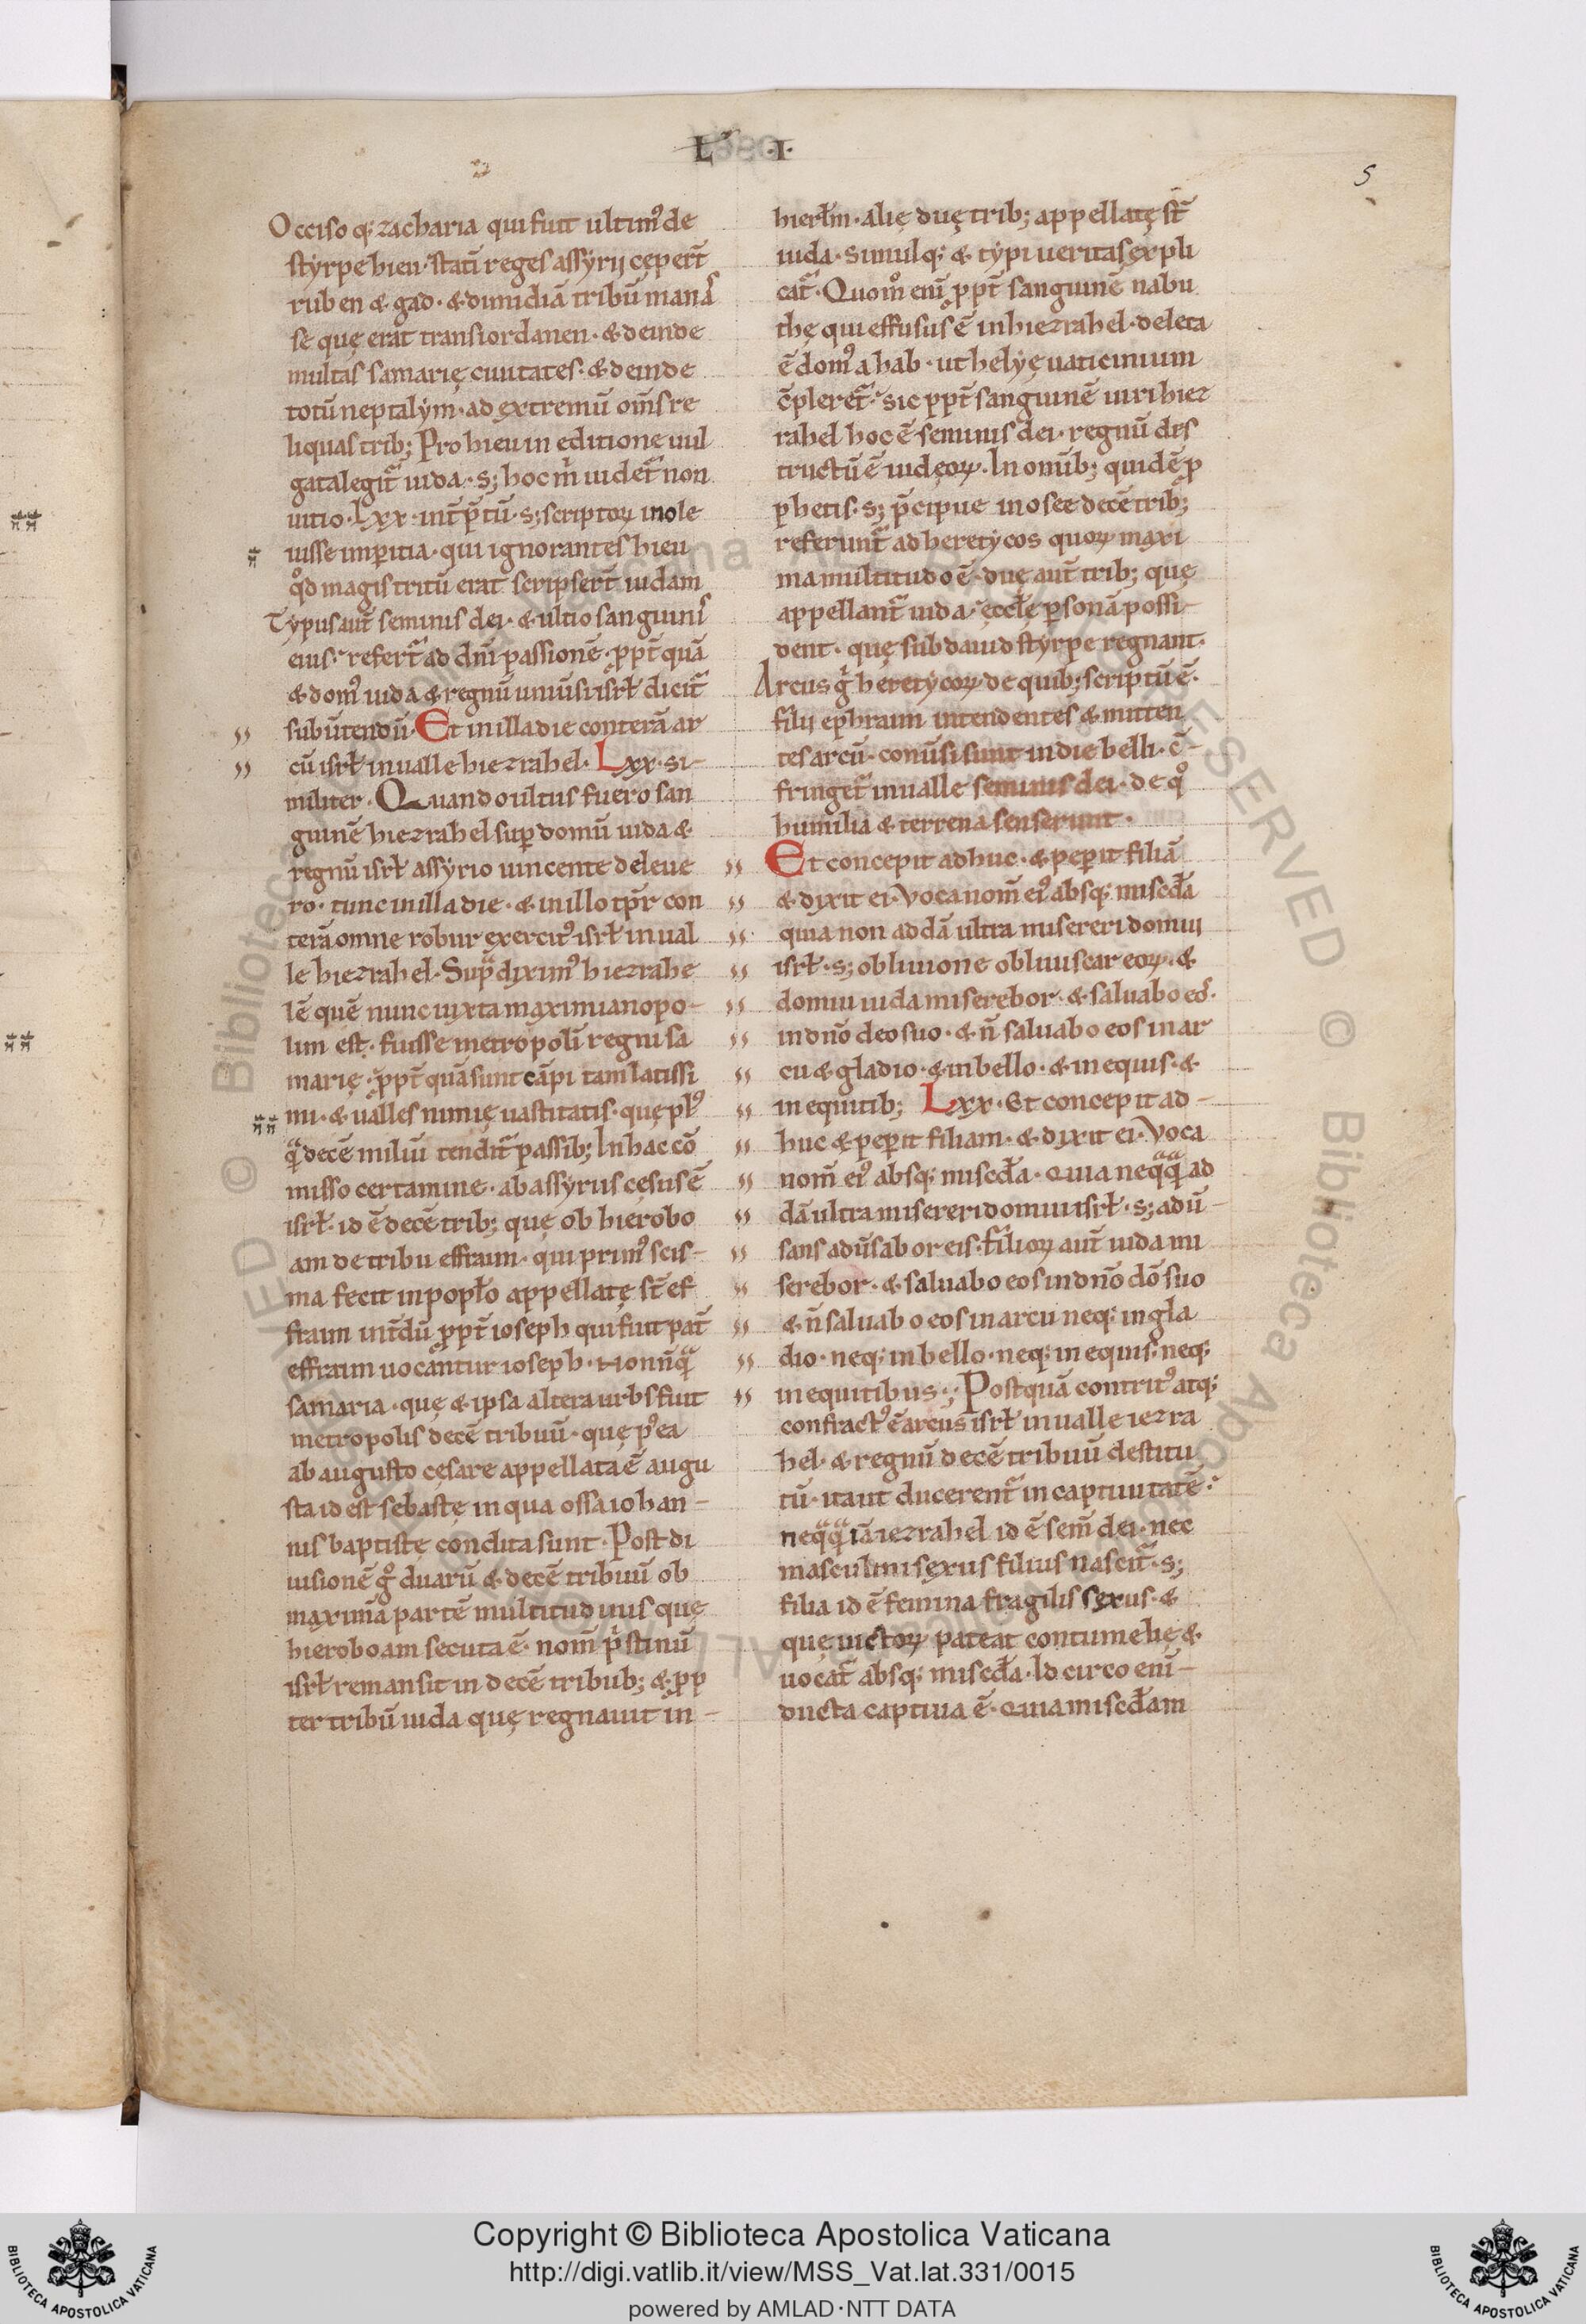 L · I ·
5
Occiso q; zacharia qui fuit ultim᷒ de
styrpe hieu · statī reges assyrij cęper̄t
ruben & gad · & dimidiā tribū manas
se quę erat transiordanen · & deinde
multas samarię ciuitates · & deinde
totū neptalym · ad extremū om̄s re
liquas trib; Pro hieu in editione uul
gata legit᷑ iuda · s; hoc m̄ uidet᷑ non
uitio · Lxx · int̄p̄tū · s; scriptoꝝ inole
uisse imꝑitia · qui ignorantes hieu
qd̊ magis tritū erat scripser̄t iudam
Typus aut̄ seminis dei · & ultio sanguinis
eius · refert᷑ ad dn̄i passionē · ꝓpt̄ quā
& dom᷒ iuda & regnū uniūsi isrł dicit᷑
subūtendū · Et in illa die conterā ar
cū isrł in ualle hiezrahel · Lxx · si-
militer · Quando ultus fuero san
guinē hiezrahel suꝑ domū iuda &
regnū isrł assyrio uincente deleue
ro · tunc in illa die · & in illo tp̄r con
terā omne robur exercit᷒ isrł in ual
le hiezrahel · Supᷓ dixim᷒ hiezrahe
lē quē nunc iuxta maximianopo-
lim est · fuisse metropolī regni sa
marię · ꝓpt̄ quā sunt cāpi tam latissi
mi · & ualles nimię uastitatis · quę pl᷒
qᷓ decē miliū tendit᷑ passib; In hac cō
misso certamine · ab assyriis cęsus ē
isrł · id ē decē trib; quę ob hierobo
am de tribu effraim · qui prim᷒ scis-
ma fecit in popło appellatę st̄ ef
fraim int̄dū ꝓpt̄ ioseph qui fuit pat̄
effraim uocantur ioseph · & nonnqᷓ
samaria · quę & ipsa altera urbs fuit
metropolis decē tribuū · quę p᷒ea
ab augusto cesare appellata ē augu
sta id est sebastę in qua ossa iohan-
nis baptistę condita sunt · Post di
uisionē gͦ duarū & decē tribuū ob
maximā partē multitudinis quę
hieroboam secuta ē · nom̄ pͥstinū
isrł remansit in decē tribub; & ꝓp
ter tribū iuda quę regnauit in-
hierłm · alię duę trib; appellatę st̄
iuda · simulq; & typi ueritas expli
cat᷑ · Quom̊ eni ꝓpt̄ sanguinē nabu
thę qui effusus ē in hiezrahel · deleta
ē dom᷒ ahab · ut helyę uaticinium
c̄pleret᷑ · sic ꝓpt̄ sanguinē uiri hiez
rahel hoc ē seminis dei · regnū des
tructū ē iudęoꝝ · In omib; quidē ꝓ
phetis · s; p̄cipue in osee decē trib;
referunt᷑ ad heretycos quoꝝ maxi
ma multitudo ē · duę aut̄ trib; quę
appellant᷑ iuda · ęccłę ꝑsonā possi-
dent · quę sub dauid styrpe regnant ·
Arcus gͥ heretycoꝝ de quib; scriptū ē ·
filij ephraim intendentes & mitten
tes arcū · conūsi sunt in die belli · c̄-
fringet᷑ in ualle seminis dei · de qͦ
humilia & terrena senserunt ·
Et concepit adhuc · & peperit filiā
& dixit ei · Voca nom̄ ei᷒ absq; miscd̄a
quia non addā ultra misereri domui
isrł · s; obliuione obliuiscar eoꝝ · &
domui iuda miserebor · & saluabo eos ·
in dn̄o deo suo · & n̄ saluabo eos in ar
cu & gladio · & in bello · & in equis · &
in equitib; Lxx · Et concepit ad-
huc & peꝑit filiam · & dixit ei · Voca
nom̄ ei᷒ absq; miscd̄a · Quia neqᷓqᷓ ad
dā ultra misereri domui isrł · s; adū-
sans adūsabor eis · filioꝝ aut̄ iuda mi
serebor · & saluabo eos in dn̄o dō suo
& n̄ saluabo eos in arcu neq; in gla
dio · neq; in bello · neq; in equis · neq;
in equitibus · Postquā contrit᷒ atq;
confract᷒ ē arcus isrł in ualle iezra
hel · & regnū decē tribuū destitu
tū · ita ut ducerent᷑ in captiuitatē ·
neqᷓqᷓ iā iezrahel id ē sem̄ dei · nec
masculini sexus filius nascit᷑ · s;
filia id ē femina fragilis sexus · &
quę uictoꝝ pateat contumelię &
uocat᷑ absq; miscd̄a · Id circo eni-
ducta captiua ē · Quia miscd̄am
Copyright © Biblioteca Apostolica Vaticana
http://digi.vatlib.it/view/MSS_Vat.lat.331/0015
powered by AMLAD·NTT DATA
BIBLIOTECA APOSTOLICA VATICANA
BIBLIOTECA APOSTOLICA VATICANA